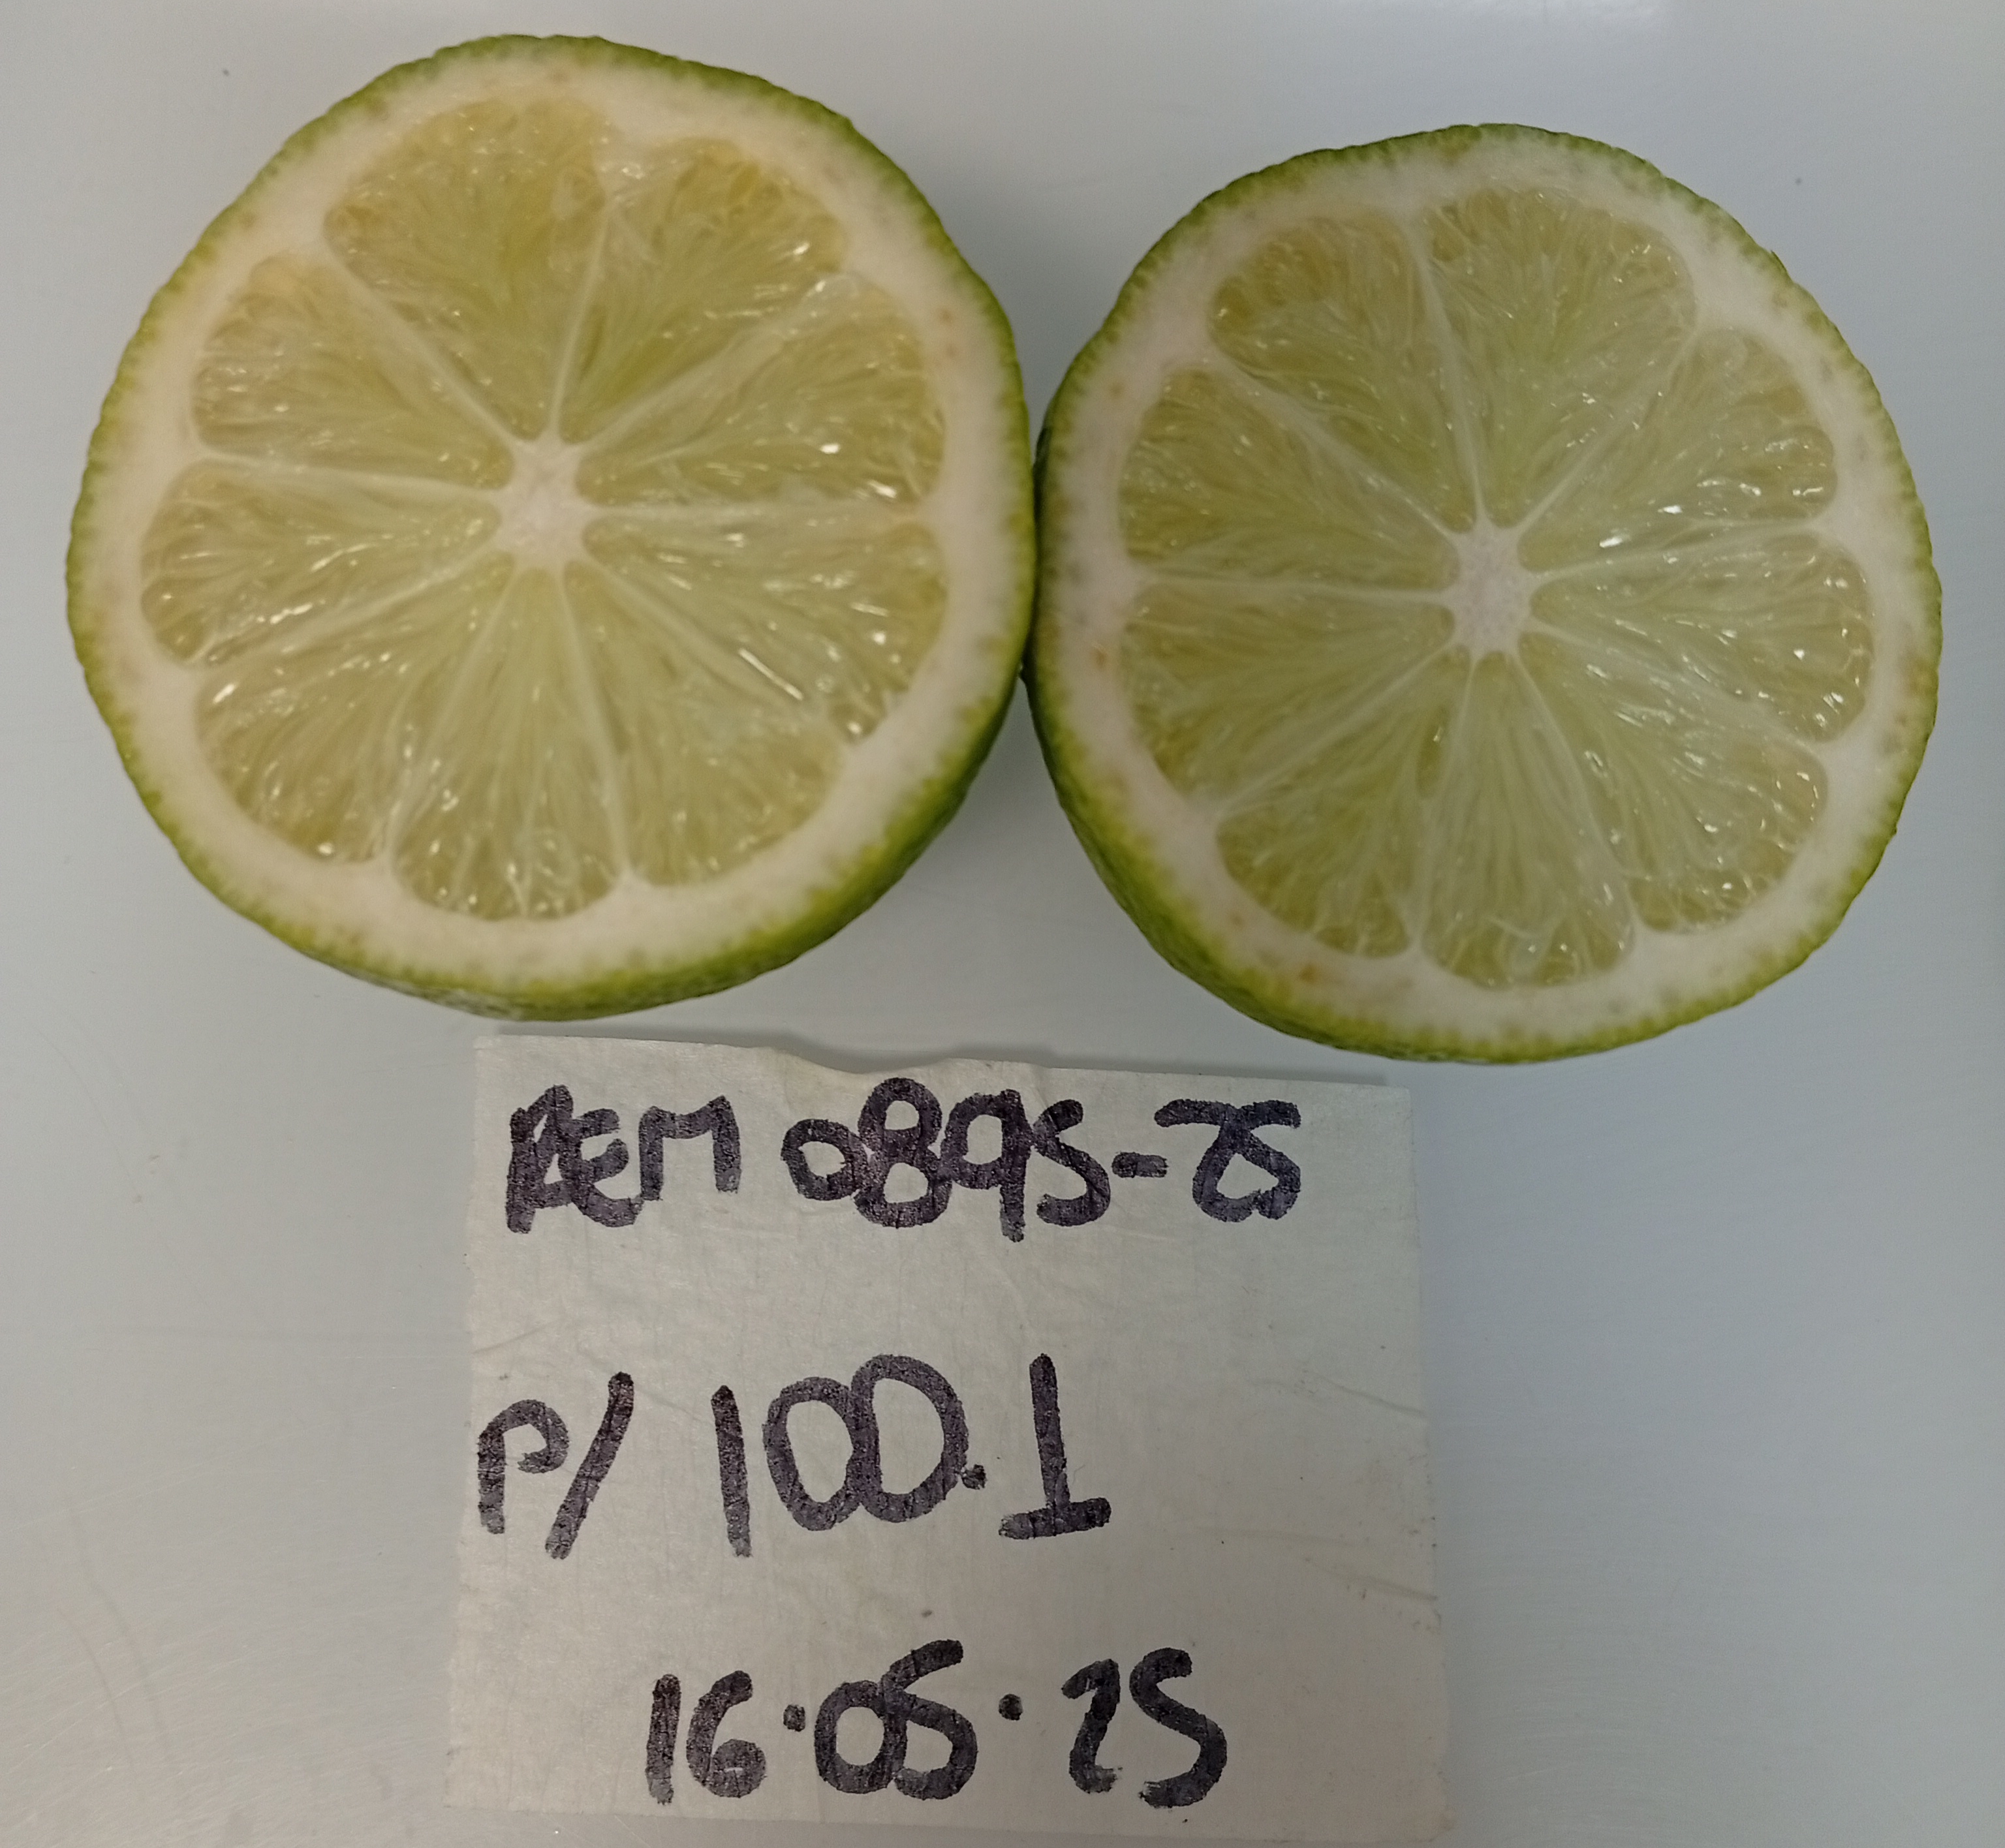 AEM 0895-25
P/ 100.1
16.05.25